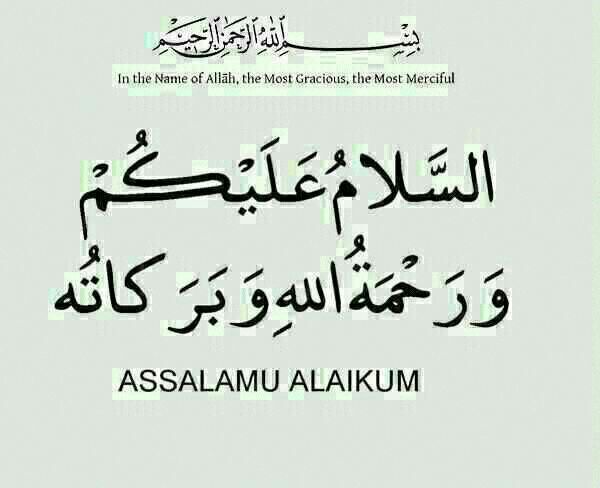 بِسْمِ اللهِ الرَّحْمٰنِ الرَّحِيْمِ
In the Name of Allāh, the Most Gracious, the Most Merciful
السَّلامُ عَلَيْكُمْ
وَرَحْمَةُ اللهِ وَبَرَكَاتُه
ASSALAMU ALAIKUM